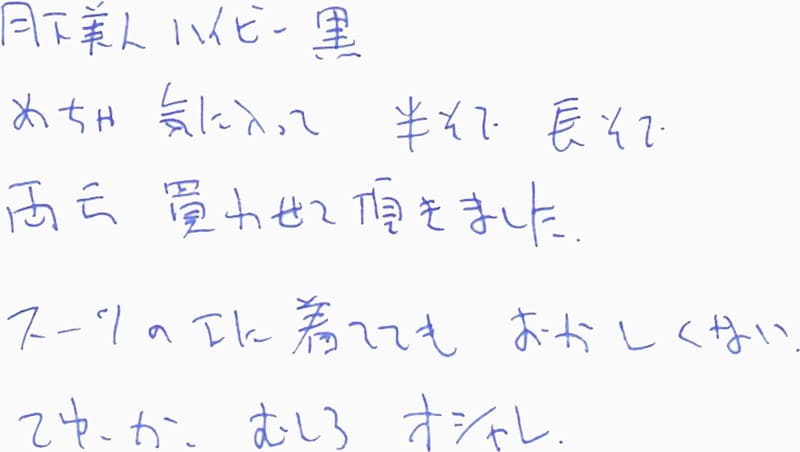 月下美人 ハイビー 黒
めちゃ 気に入って 半そで 長そで
両方 買わせて頂きました.
スーツの下に 着てても おかしくない.
てゆーか、むしろ オシャレ.